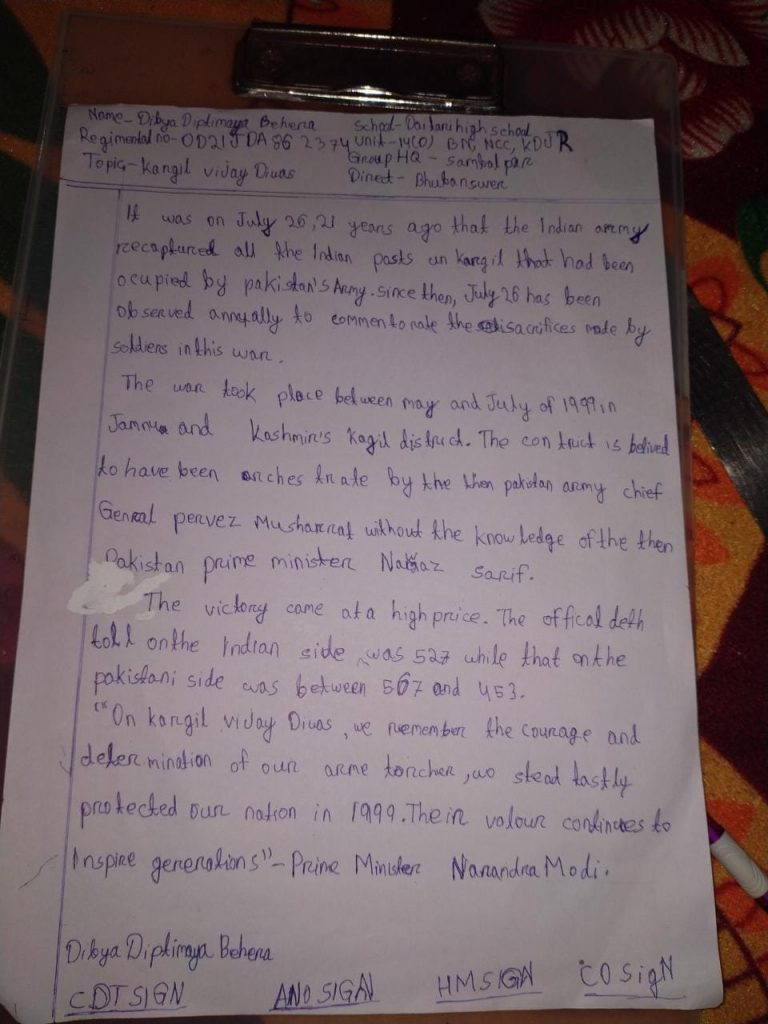 Name- Dibya Diptimaya Behera
School- Daitari high school
Regimental no- OD21JDA862374
Unit- 14(O) BN, NCC, KDJR
Group HQ - Sambalpur
Topic- Kargil vijay Diwas
Direct- Bhubanswer
It was on July 26, 21 years ago that the Indian army
recaptured all the Indian posts un kargil that had been
ocupied by pakistan's Army. since then, July 26 has been
observed annually to commentorate the sacrifices made by
soldiers in this war.
The war took place between may and July of 1999 in
Jammu and Kashmir's Kagil district. The contruct is belived
to have been orches trate by the then pakistan army chief
Genral pervez Musharraf without the knowledge of the then
Pakistan prime minister Nawaz sarif.
The victory came at a high price. The offical deth
toll on the Indian side was 527 while that on the
pakistani side was between 567 and 453.
"On kargil vijay Diwas, we remember the courage and
determination of our arme torcher, wo stead tastly
protected our nation in 1999. Their valour continues to
Inspire generations" - Prime Minister Narandra Modi.
Dibya Diptimaya Behera
CDT SIGN
ANO SIGN
HM SIGN
CO SigN